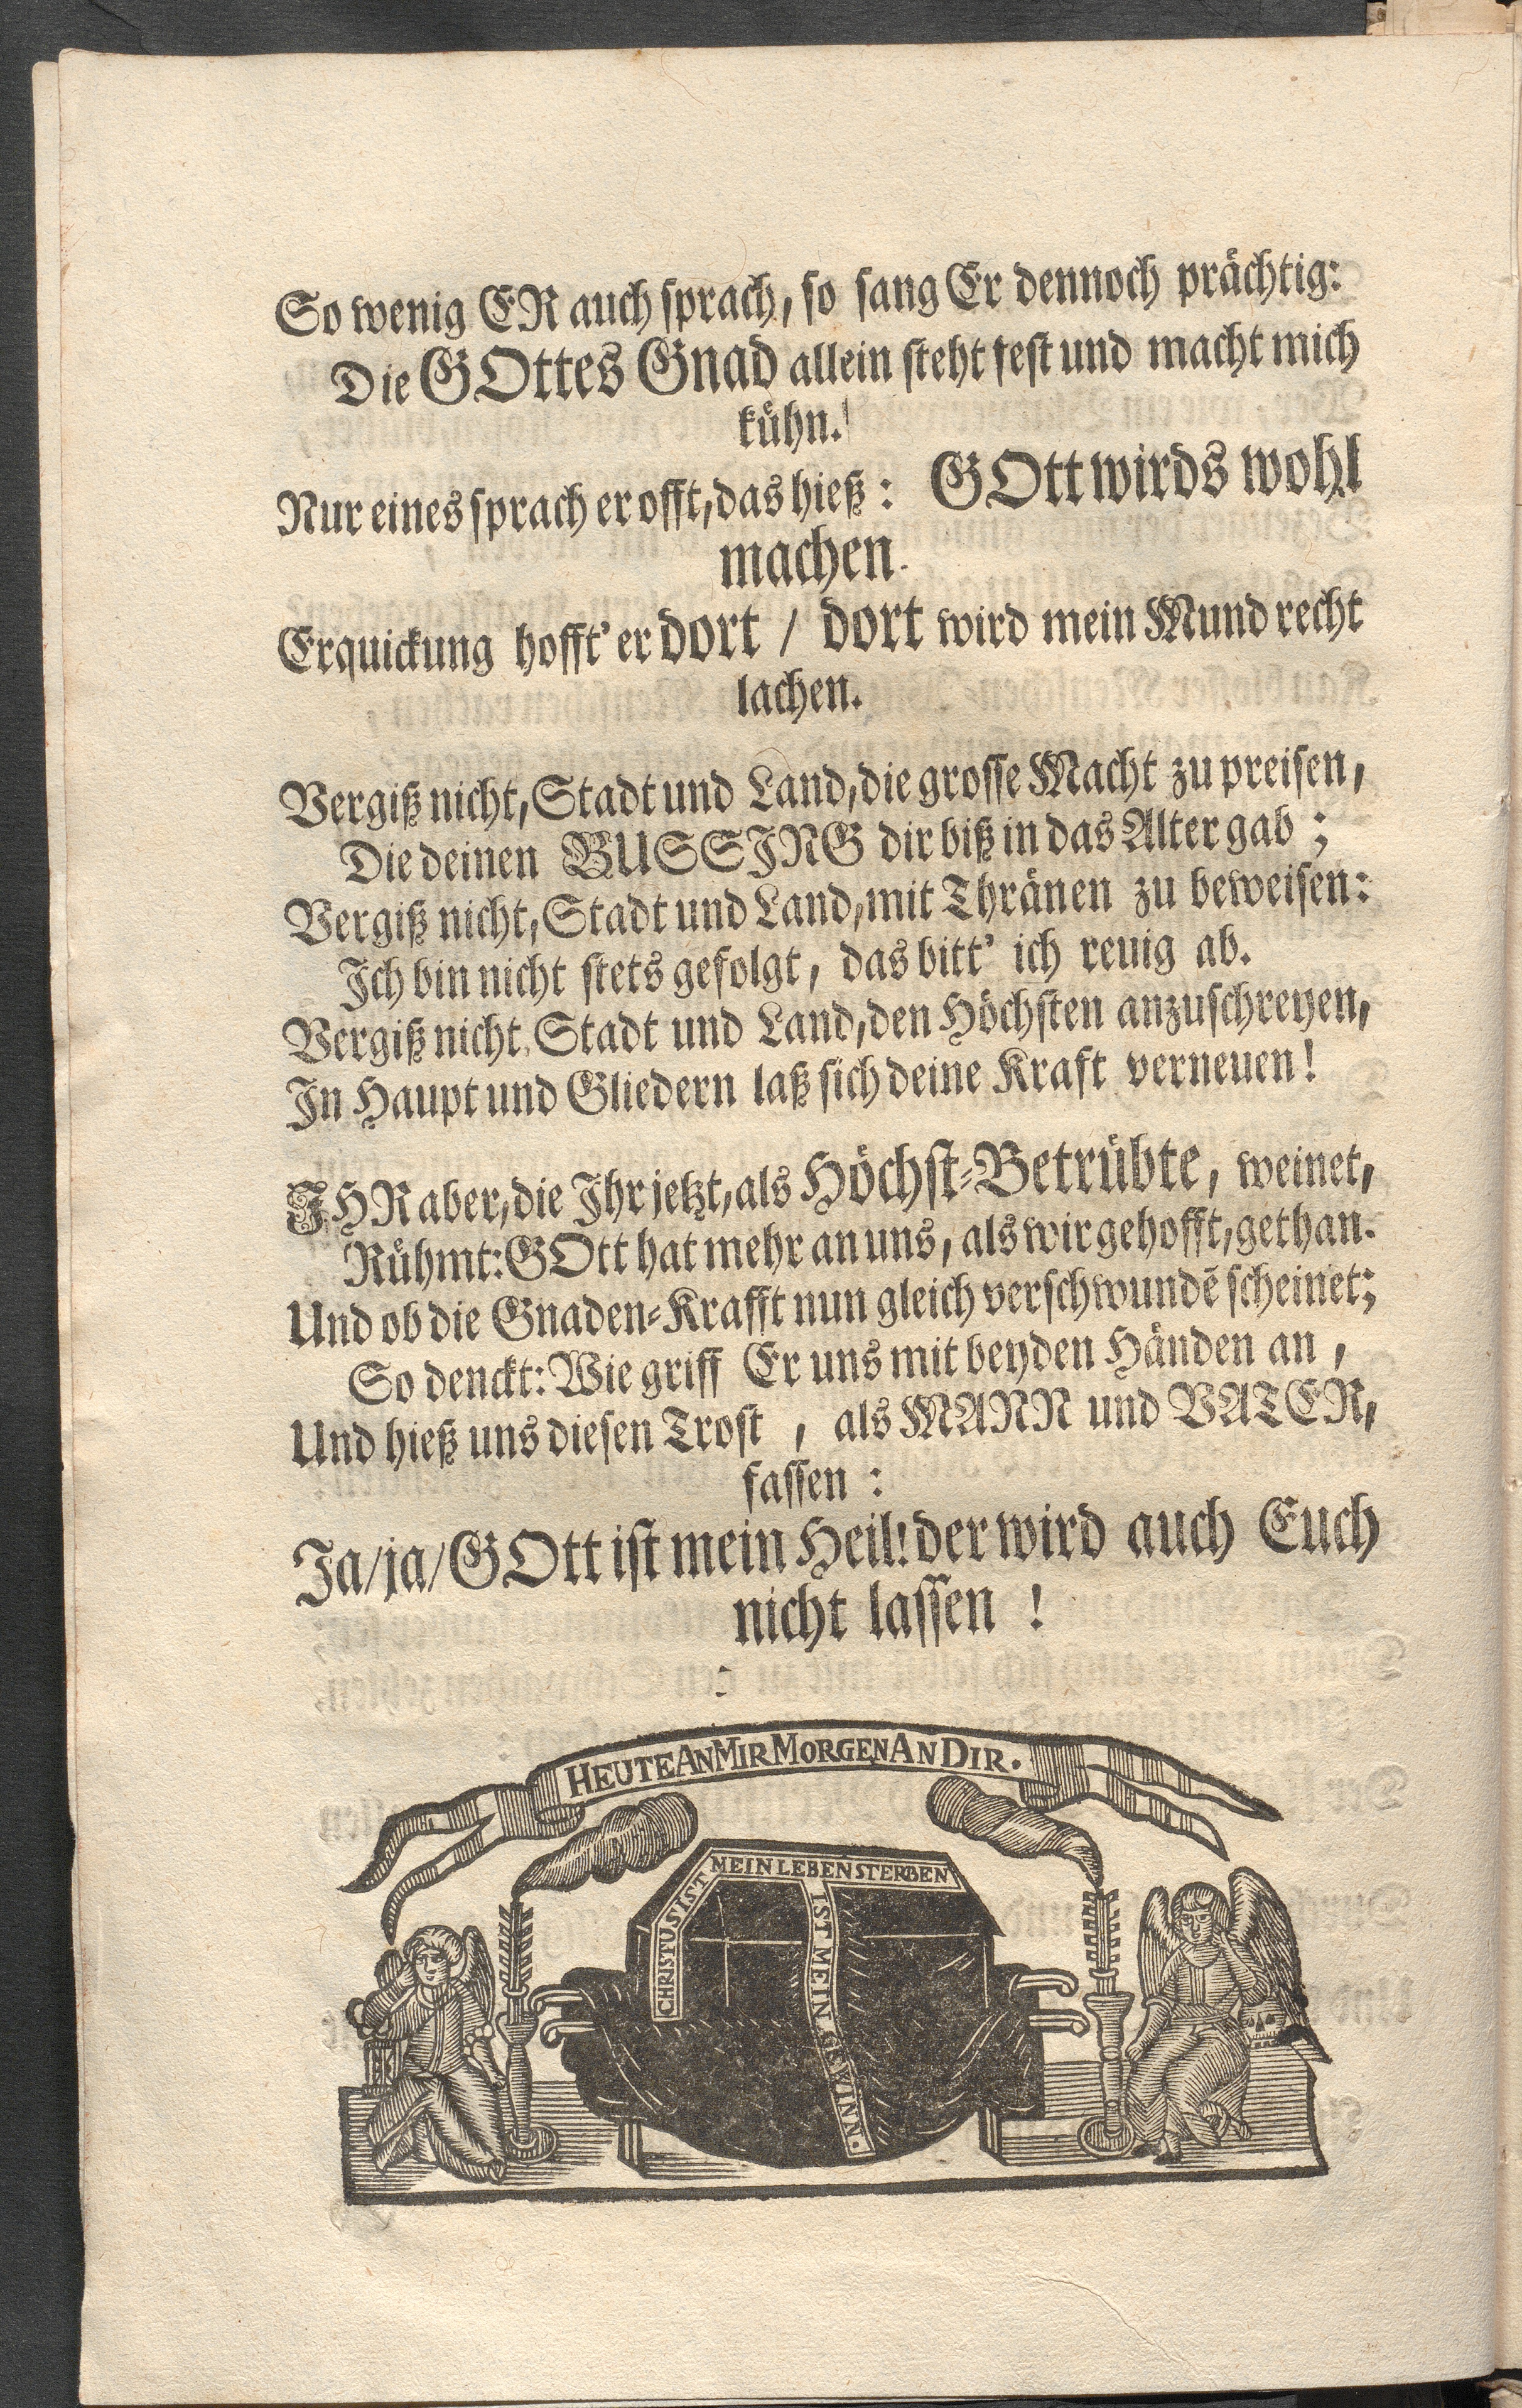 So wenig ER auch sprach, so sang Er dennoch prächtig:
Die GOttes Gnad allein steht fest und macht mich
kühn.
Nur eines sprach er offt, das hieß: GOtt wirds wohl
machen.
Erquickung hofft' er dort / dort wird mein Mund recht
lachen.
Vergiß nicht, Stadt und Land, die grosse Macht zu preisen,
Die deinen BUSSING dir biß in das Alter gab;
Vergiß nicht, Stadt und Land, mit Thränen zu beweisen:
Ich bin nicht stets gefolgt, das bitt' ich reuig ab.
Vergiß nicht, Stadt und Land, den Höchsten anzuschreyen,
In Haupt und Gliedern laß sich deine Kraft verneuen!
IHR aber, die Ihr jetzt, als Höchst-Betrübte, weinet,
Rühmt: GOtt hat mehr an uns, als wir gehofft, gethan.
Und ob die Gnaden-Krafft nun gleich verschwundē scheinet;
So denckt: Wie griff Er uns mit beyden Händen an,
Und hieß uns diesen Trost, als MANN und VATER,
fassen:
Ja/ja/GOtt ist mein Heil! der wird auch Euch
nicht lassen!
HEUTE AN MIR MORGEN AN DIR.
CHRISTUS IST MEIN LEBEN STERBEN
IST MEIN GEWINN.